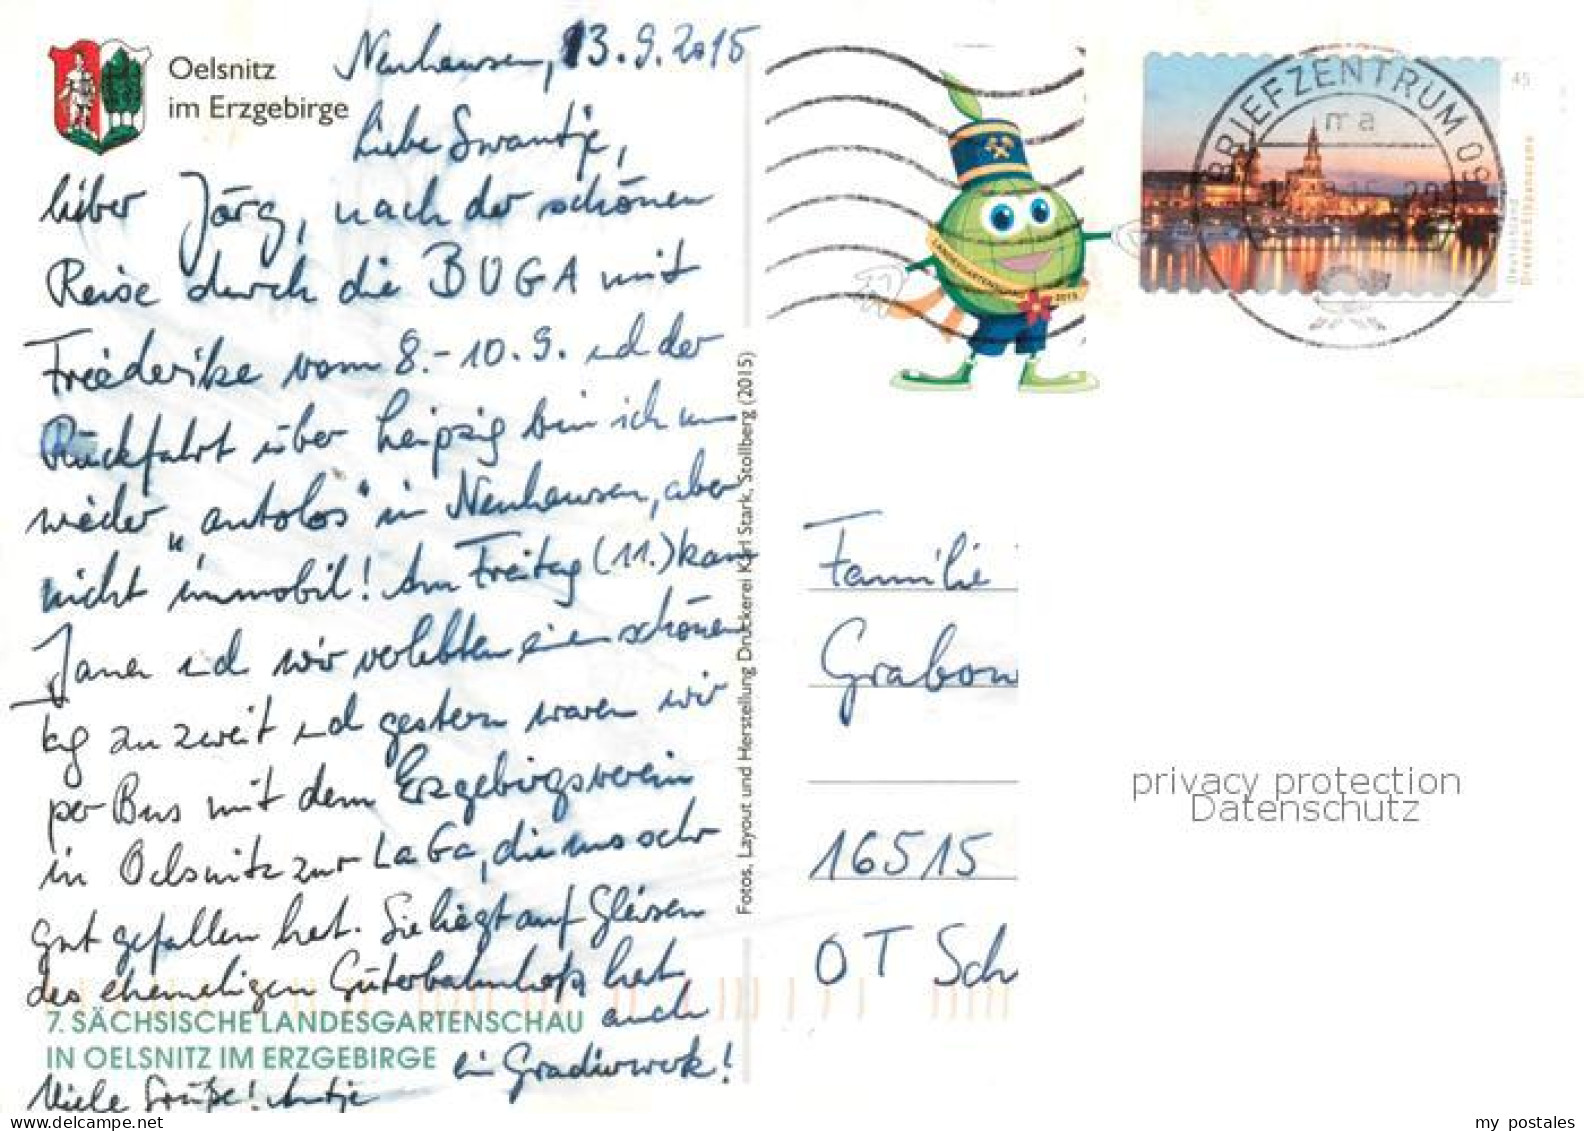 Oelsnitz
im Erzgebirge
Neuhausen, 13.9.2015
Liebe Swantje,
lieber Jörg, nach der schönen
Reise durch die BUGA mit
Friederike vom 8.-10.9. und der
Rückfahrt über Leipzig bin ich nun
wieder „autolos" in Neuhausen, aber
nicht immobil! Am Freitag (11.) kam
Jana und wir verlebten einen schönen
Tag zu zweit und gestern waren wir
per Bus mit dem Erzgebirgsverein
in Oelsnitz zur LaGa, die uns sehr
gut gefallen hat. Sie liegt auf Gleisen
des ehemaligen Güterbahnhofs hat
auch
ein Gradierwerk!
Viele Grüße! Antje
7. SÄCHSISCHE LANDESGARTENSCHAU
IN OELSNITZ IM ERZGEBIRGE
Fotos, Layout und Herstellung Druckerei Karl Stark, Stollberg (2015)
LANDESGARTENSCHAU 2015
BRIEFZENTRUM 09
ma
45
Deutschland
Dresden Elbpanorama
Familie
Grabow
16515
OT Sch
privacy protection
Datenschutz
my postales